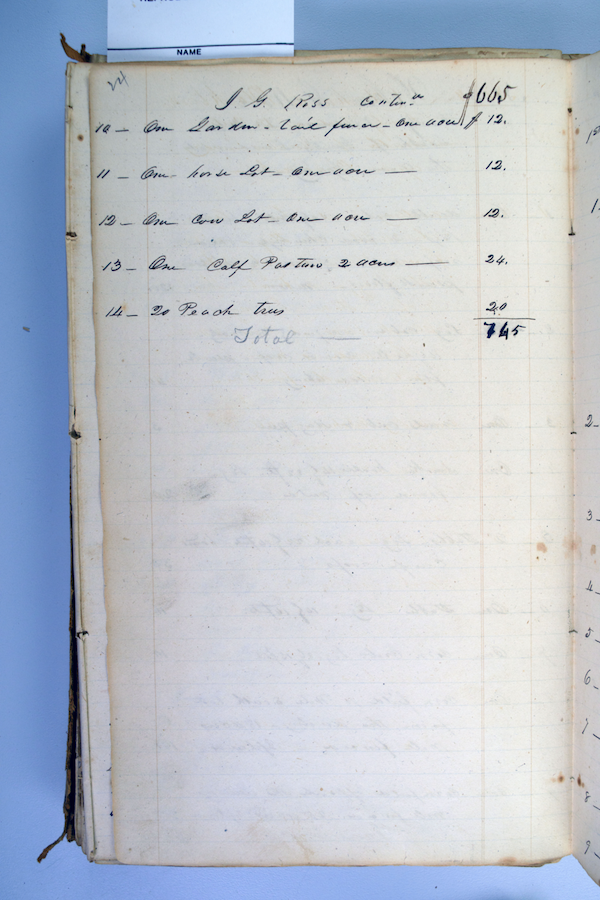 NAME
24
J G Ross contin 665
10 — One Garden - rail fence - One acre $ 12.
11 — One horse Lot - One acre — 12.
12 — One Cow Lot - One acre — 12.
13 — One Calf Pasture 2 acres — 24.
14 — 20 Peach trees 20
Total — 745
1
2 -
3 -
4 -
5 -
6 -
7 -
8 -
9 -